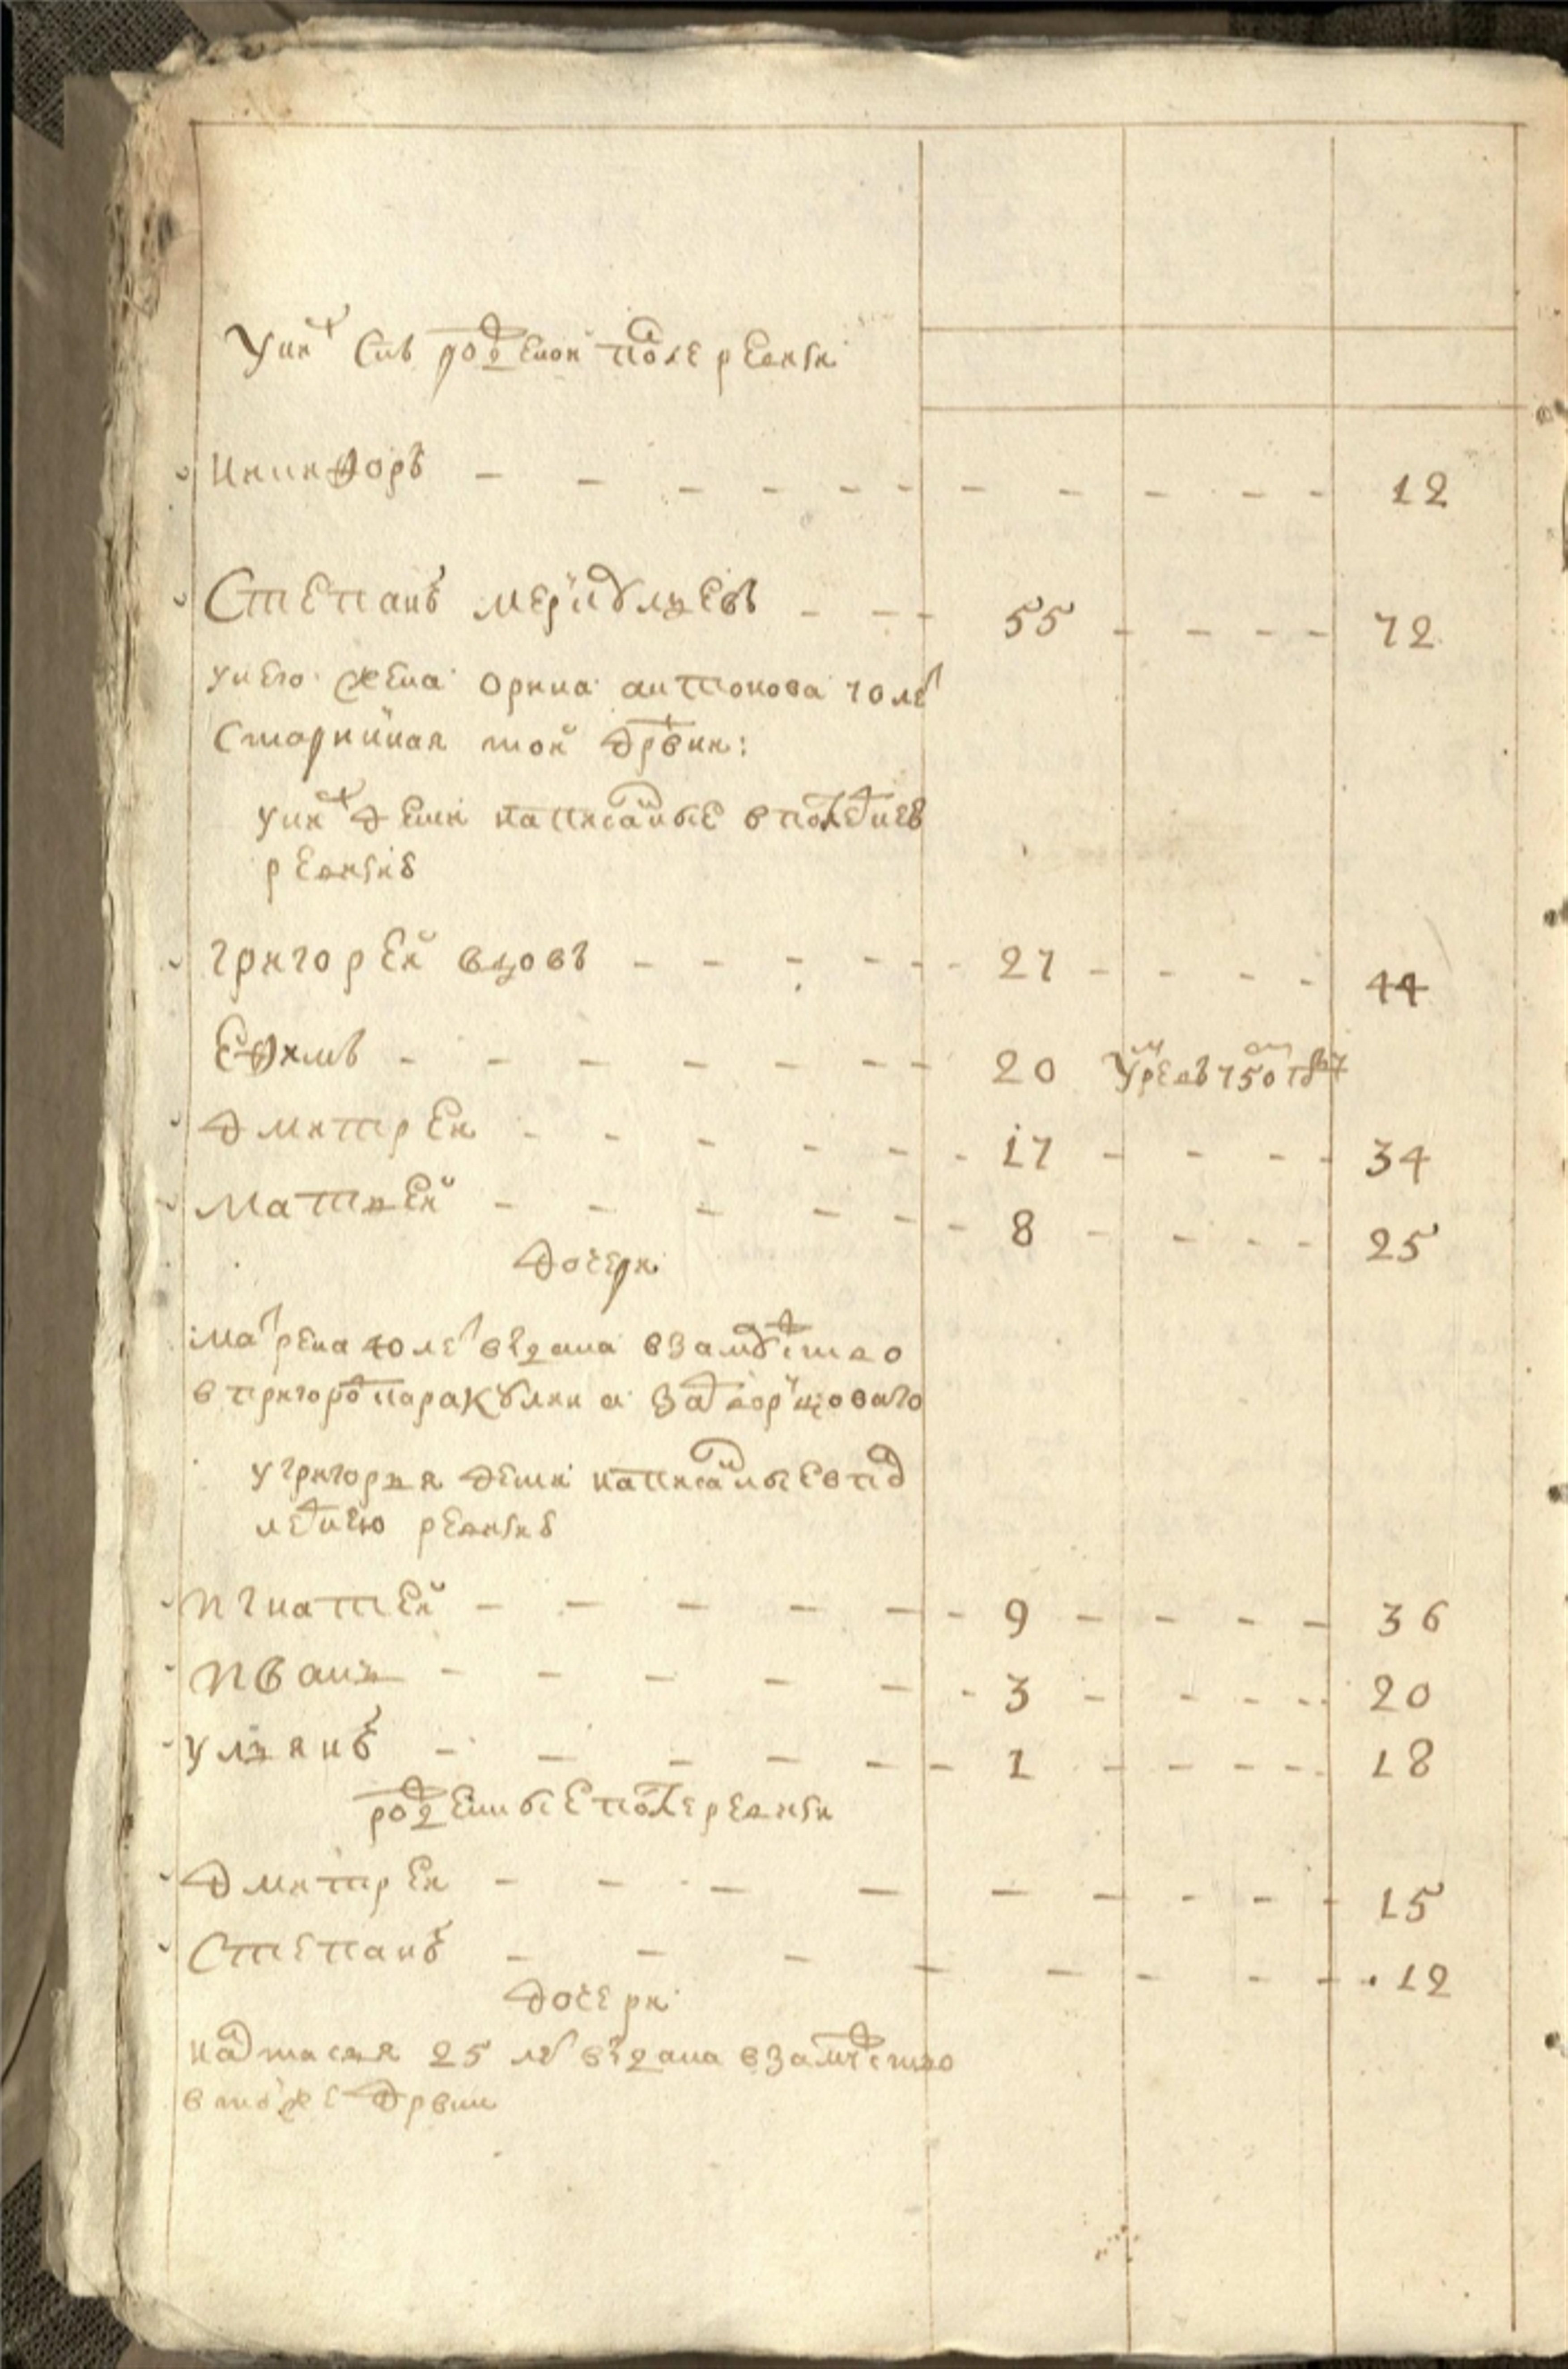 У них снъ рожденои после ревизи
Никифоръ - - - - - - - - - - - 12
Степанъ Меркульевъ - - - 55 - - - - 72
у него жена Орина Антонова 70 лет
старинная той држ деревни:
у них дети написанные в последнею
ревизию
Григорей вдовъ - - - - - - 27 - - - - 44
Ефимъ - - - - - - - 20 умре в 750 году
Дмитреи - - - - - - 17 - - - - 34
Матвей - - - - - - 8 - - - - 25
дочери
Марена 40 лет выдана в замужество
в пригород
у Григорья дети написанные в послед
летнею ревизию
Игнатей - - - - - - 9 - - - - 36
Иванъ - - - - - - 3 - - - - 20
Ульянъ - - - - - - 1 - - - - 18
рожденные после ревизи
Дмитреи - - - - - - - - - 15
Степанъ - - - - - - - - 12
дочери
Настасья 25 лет выдана в замужество
в той же дрвни